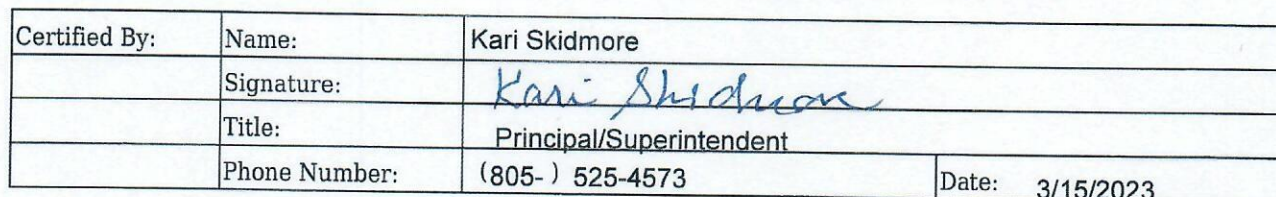 Certified By: Name: Kari Skidmore
Signature: Kari Skidmore
Title: Principal/Superintendent
Phone Number: (805- ) 525-4573 Date: 3/15/2023